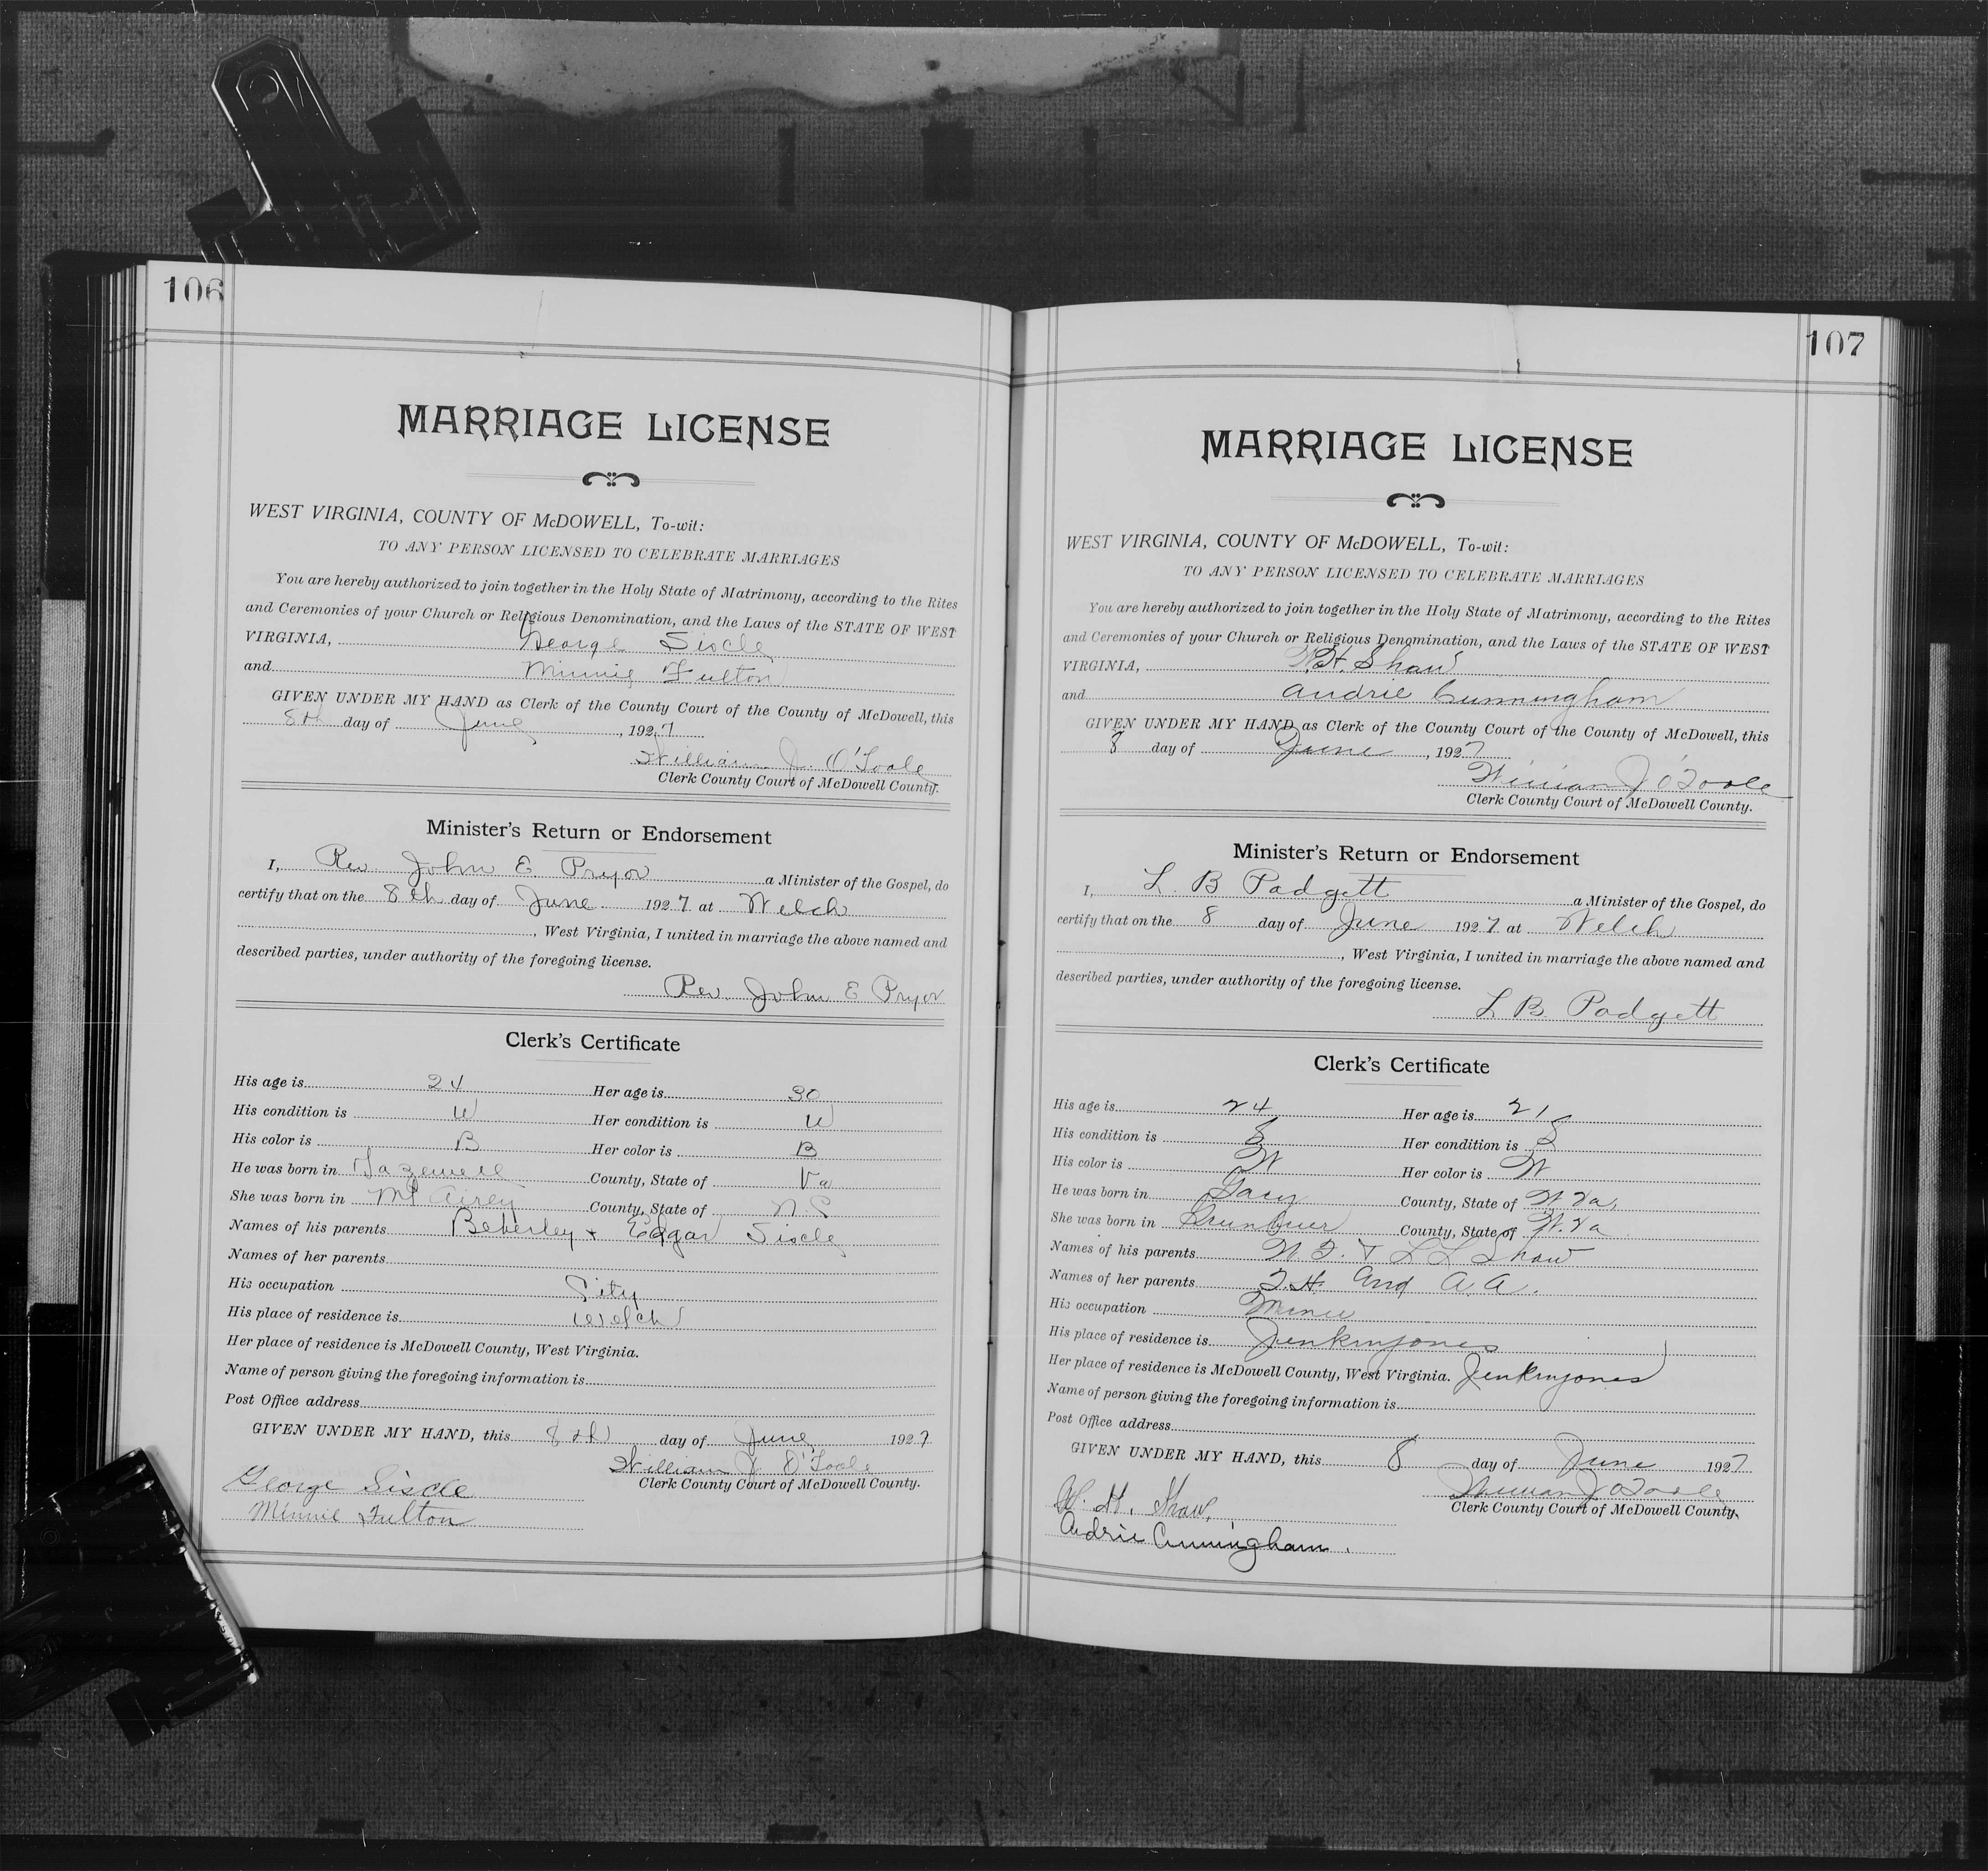 106
MARRIAGE LICENSE
WEST VIRGINIA, COUNTY OF McDOWELL, To-wit:
TO ANY PERSON LICENSED TO CELEBRATE MARRIAGES
You are hereby authorized to join together in the Holy State of Matrimony, according to the Rites
and Ceremonies of your Church or Religious Denomination, and the Laws of the STATE OF WEST
VIRGINIA, George Siscle
and Minnie Fulton
GIVEN UNDER MY HAND as Clerk of the County Court of the County of McDowell, this
8th day of June, 1927
William J. O'Toole
Clerk County Court of McDowell County.
Minister's Return or Endorsement
I, Rev John E. Pryor a Minister of the Gospel, do
certify that on the 8th day of June 1927 at Welch
, West Virginia, I united in marriage the above named and
described parties, under authority of the foregoing license.
Rev. John E Pryor
Clerk's Certificate
His age is 24 Her age is 30
His condition is W Her condition is W
His color is B Her color is B
He was born in Tazewell County, State of Va
She was born in Mt Airey County, State of N.C
Names of his parents Beverley + Edgar Siscle
Names of her parents
His occupation City
His place of residence is Welch
Her place of residence is McDowell County, West Virginia.
Name of person giving the foregoing information is
Post Office address
GIVEN UNDER MY HAND, this 8th day of June 1927
William J O'Toole
Clerk County Court of McDowell County.
George Siscle
Minnie Fulton
107
MARRIAGE LICENSE
WEST VIRGINIA, COUNTY OF McDOWELL, To-wit:
TO ANY PERSON LICENSED TO CELEBRATE MARRIAGES
You are hereby authorized to join together in the Holy State of Matrimony, according to the Rites
and Ceremonies of your Church or Religious Denomination, and the Laws of the STATE OF WEST
VIRGINIA, W.H. Shaw
and Audrie Cunningham
GIVEN UNDER MY HAND as Clerk of the County Court of the County of McDowell, this
8 day of June, 1927
William J O'Toole
Clerk County Court of McDowell County.
Minister's Return or Endorsement
I, L. B Padgett a Minister of the Gospel, do
certify that on the 8 day of June 1927 at Welch
, West Virginia, I united in marriage the above named and
described parties, under authority of the foregoing license.
L B. Padgett
Clerk's Certificate
His age is 24 Her age is 21
His condition is S Her condition is S
His color is W Her color is W
He was born in Gary County, State of W Va,
She was born in County, State of W. Va
Names of his parents W. T. & L L Shaw
Names of her parents T.H. and A.A.
His occupation Miner
His place of residence is Jenkinjones
Her place of residence is McDowell County, West Virginia. Jenkinjones
Name of person giving the foregoing information is
Post Office address
GIVEN UNDER MY HAND, this 8 day of June 1927
William J O'Toole
Clerk County Court of McDowell County.
W. H. Shaw,
Audrie Cunningham.